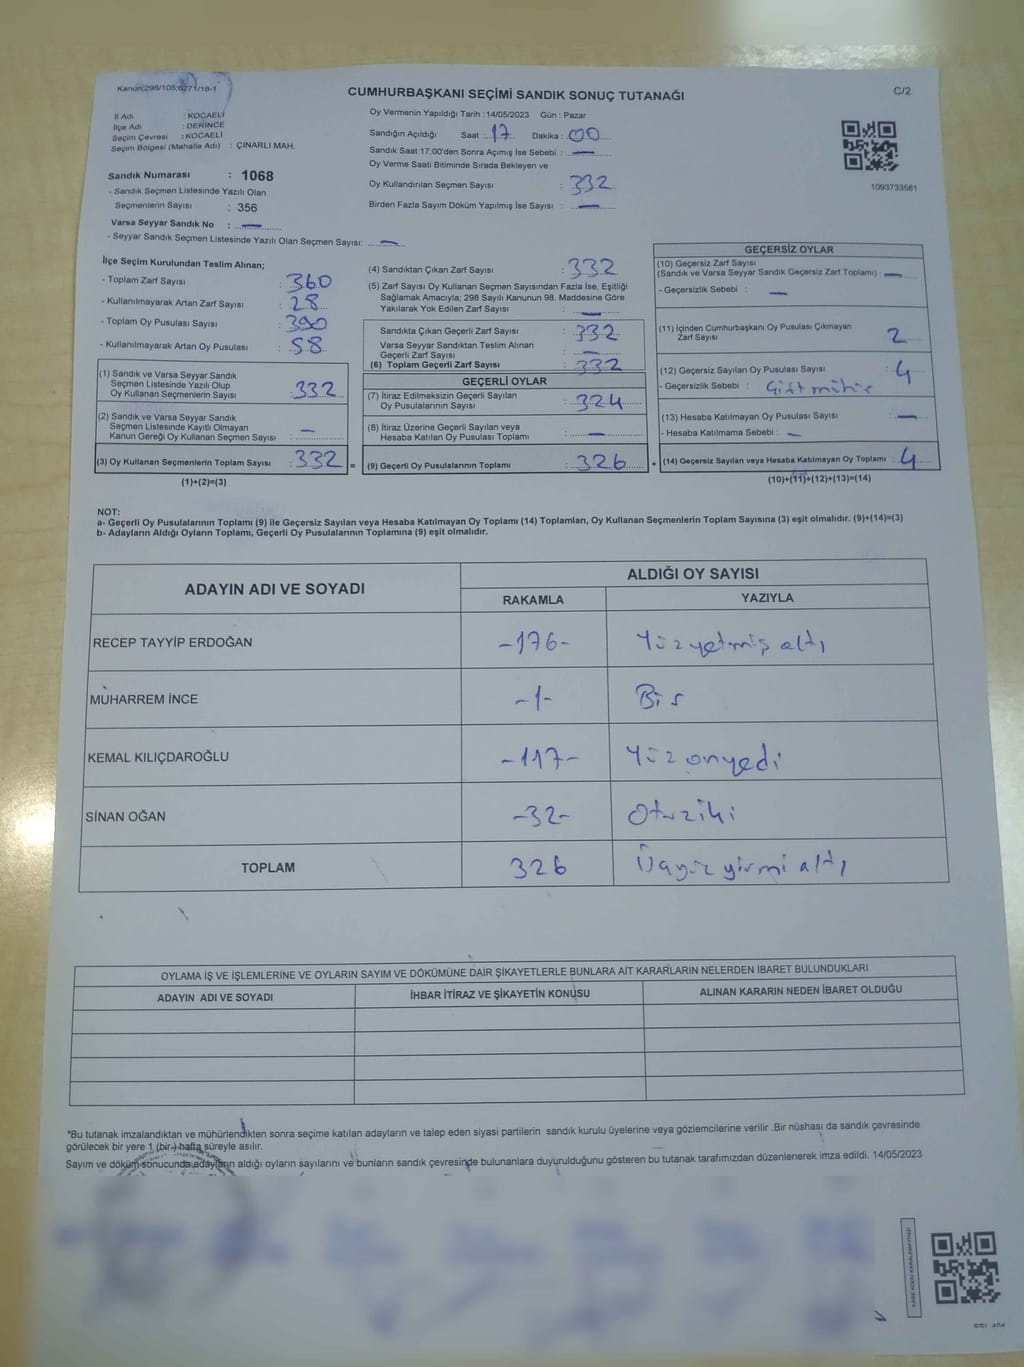 Kanun:298/105;6271/18-1
CUMHURBAŞKANI SEÇİMİ SANDIK SONUÇ TUTANAĞI
C/2
İl Adı : KOCAELİ
İlçe Adı : DERİNCE
Seçim Çevresi : KOCAELİ
Seçim Bölgesi (Mahalle Adı) : ÇINARLI MAH.
Sandık Numarası : 1068
- Sandık Seçmen Listesinde Yazılı Olan
Seçmenlerin Sayısı : 356
Varsa Seyyar Sandık No : —
- Seyyar Sandık Seçmen Listesinde Yazılı Olan Seçmen Sayısı: —
Oy Vermenin Yapıldığı Tarih : 14/05/2023 Gün : Pazar
Sandığın Açıldığı Saat : 17 Dakika : 00
Sandık Saat 17:00'den Sonra Açımış İse Sebebi : —
Oy Verme Saati Bitiminde Sırada Bekleyen ve
Oy Kullandırılan Seçmen Sayısı : 332
Birden Fazla Sayım Döküm Yapılmış İse Sayısı : —
1093733561
İlçe Seçim Kurulundan Teslim Alınan;
- Toplam Zarf Sayısı : 360
- Kullanılmayarak Artan Zarf Sayısı : 28
- Toplam Oy Pusulası Sayısı : 390
- Kullanılmayarak Artan Oy Pusulası : 58
(1) Sandık ve Varsa Seyyar Sandık
Seçmen Listesinde Yazılı Olup
Oy Kullanan Seçmenlerin Sayısı : 332
(2) Sandık ve Varsa Seyyar Sandık
Seçmen Listesinde Kayıtlı Olmayan
Kanun Gereği Oy Kullanan Seçmen Sayısı : —
(3) Oy Kullanan Seçmenlerin Toplam Sayısı : 332 =
(1)+(2)=(3)
(4) Sandıktan Çıkan Zarf Sayısı : 332
(5) Zarf Sayısı Oy Kullanan Seçmen Sayısından Fazla İse, Eşitliği
Sağlamak Amacıyla; 298 Sayılı Kanunun 98. Maddesine Göre
Yakılarak Yok Edilen Zarf Sayısı : —
Sandıkta Çıkan Geçerli Zarf Sayısı : 332
Varsa Seyyar Sandıktan Teslim Alınan
Geçerli Zarf Sayısı : —
(6) Toplam Geçerli Zarf Sayısı : 332
GEÇERLİ OYLAR
(7) İtiraz Edilmeksizin Geçerli Sayılan
Oy Pusulalarının Sayısı : 324
(8) İtiraz Üzerine Geçerli Sayılan veya
Hesaba Katılan Oy Pusulası Toplamı : —
(9) Geçerli Oy Pusulalarının Toplamı : 326 +
GEÇERSİZ OYLAR
(10) Geçersiz Zarf Sayısı
(Sandık ve Varsa Seyyar Sandık Geçersiz Zarf Toplamı) : —
- Geçersizlik Sebebi : —
(11) İçinden Cumhurbaşkanı Oy Pusulası Çıkmayan
Zarf Sayısı : 2
(12) Geçersiz Sayılan Oy Pusulası Sayısı : 4
- Geçersizlik Sebebi :
(13) Hesaba Katılmayan Oy Pusulası Sayısı : —
- Hesaba Katılmama Sebebi : —
(14) Geçersiz Sayılan veya Hesaba Katılmayan Oy Toplamı : 4
(10)+(11)+(12)+(13)=(14)
NOT:
a- Geçerli Oy Pusulalarının Toplamı (9) ile Geçersiz Sayılan veya Hesaba Katılmayan Oy Toplamı (14) Toplamları, Oy Kullanan Seçmenlerin Toplam Sayısına (3) eşit olmalıdır. (9)+(14)=(3)
b- Adayların Aldığı Oyların Toplamı, Geçerli Oy Pusulalarının Toplamına (9) eşit olmalıdır.
ADAYIN ADI VE SOYADI
ALDIĞI OY SAYISI
RAKAMLA YAZIYLA
RECEP TAYYİP ERDOĞAN -176- Yüzyetmiş altı
MUHARREM İNCE -1- Bir
KEMAL KILIÇDAROĞLU -117- Yüz onyedi
SİNAN OĞAN -32- Otuziki
TOPLAM 326 Üçyüz yirmi altı
OYLAMA İŞ VE İŞLEMLERİNE VE OYLARIN SAYIM VE DÖKÜMÜNE DAİR ŞİKAYETLERLE BUNLARA AİT KARARLARIN NELERDEN İBARET BULUNDUKLARI
ADAYIN ADI VE SOYADI İHBAR İTİRAZ VE ŞİKAYETİN KONUSU ALINAN KARARIN NEDEN İBARET OLDUĞU
*Bu tutanak imzalandıktan ve mühürlendikten sonra seçime katılan adayların ve talep eden siyasi partilerin sandık kurulu üyelerine veya gözlemcilerine verilir .Bir nüshası da sandık çevresinde
görülecek bir yere 1 (bir-) hafta süreyle asılır.
Sayım ve döküm sonucunda adayların aldığı oyların sayılarını ve bunların sandık çevresinde bulunanlara duyurulduğunu gösteren bu tutanak tarafımızdan düzenlenerek imza edildi. 14/05/2023